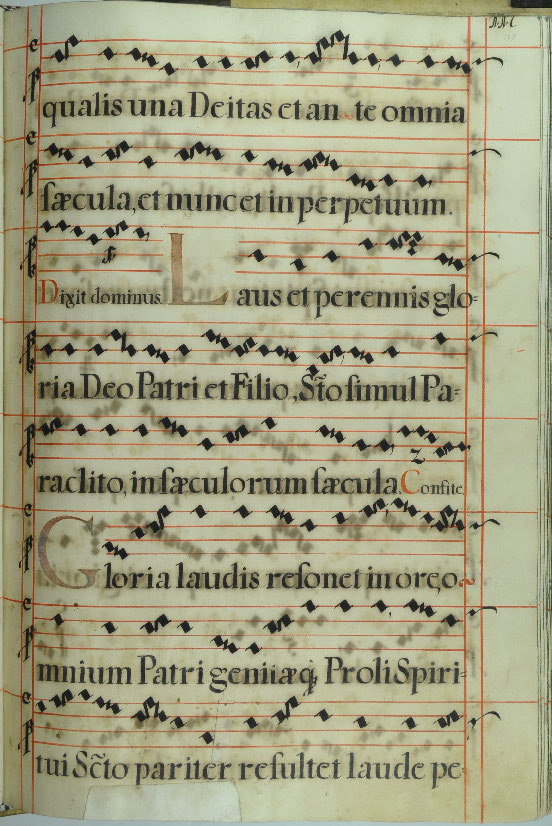 qualis una Deitas et an te omnia
sæcula, et nunc et in perpetuum.
Dixit dominus. Laus et perennis glo-
ria Deo Patri et Filio, Sto simul Pa-
raclito, in sæculorum sæcula. Confite
Gloria laudis resonet in ore, o
mnium Patri genitæq, Proli Spiri-
tui Scto pariter resultet laude pe-